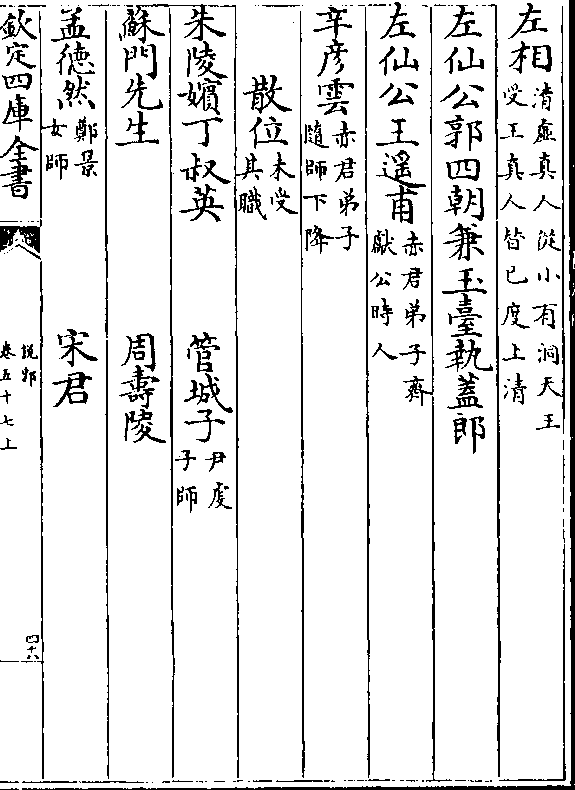 左相清虛真人從小有洞天王受王真人皆已度上清
左仙公郭四朝兼玉臺執蓋郎
左仙公王遥甫赤君弟子齊獻公時人
辛彦雲赤君弟子隨師下降
散位未受其職
朱陵嬪丁叔英 管城子尹虔子師
蘇門先生 周壽陵
孟德然鄭景女師 宋君
欽定四庫全書 説郛卷五十七上 四十六